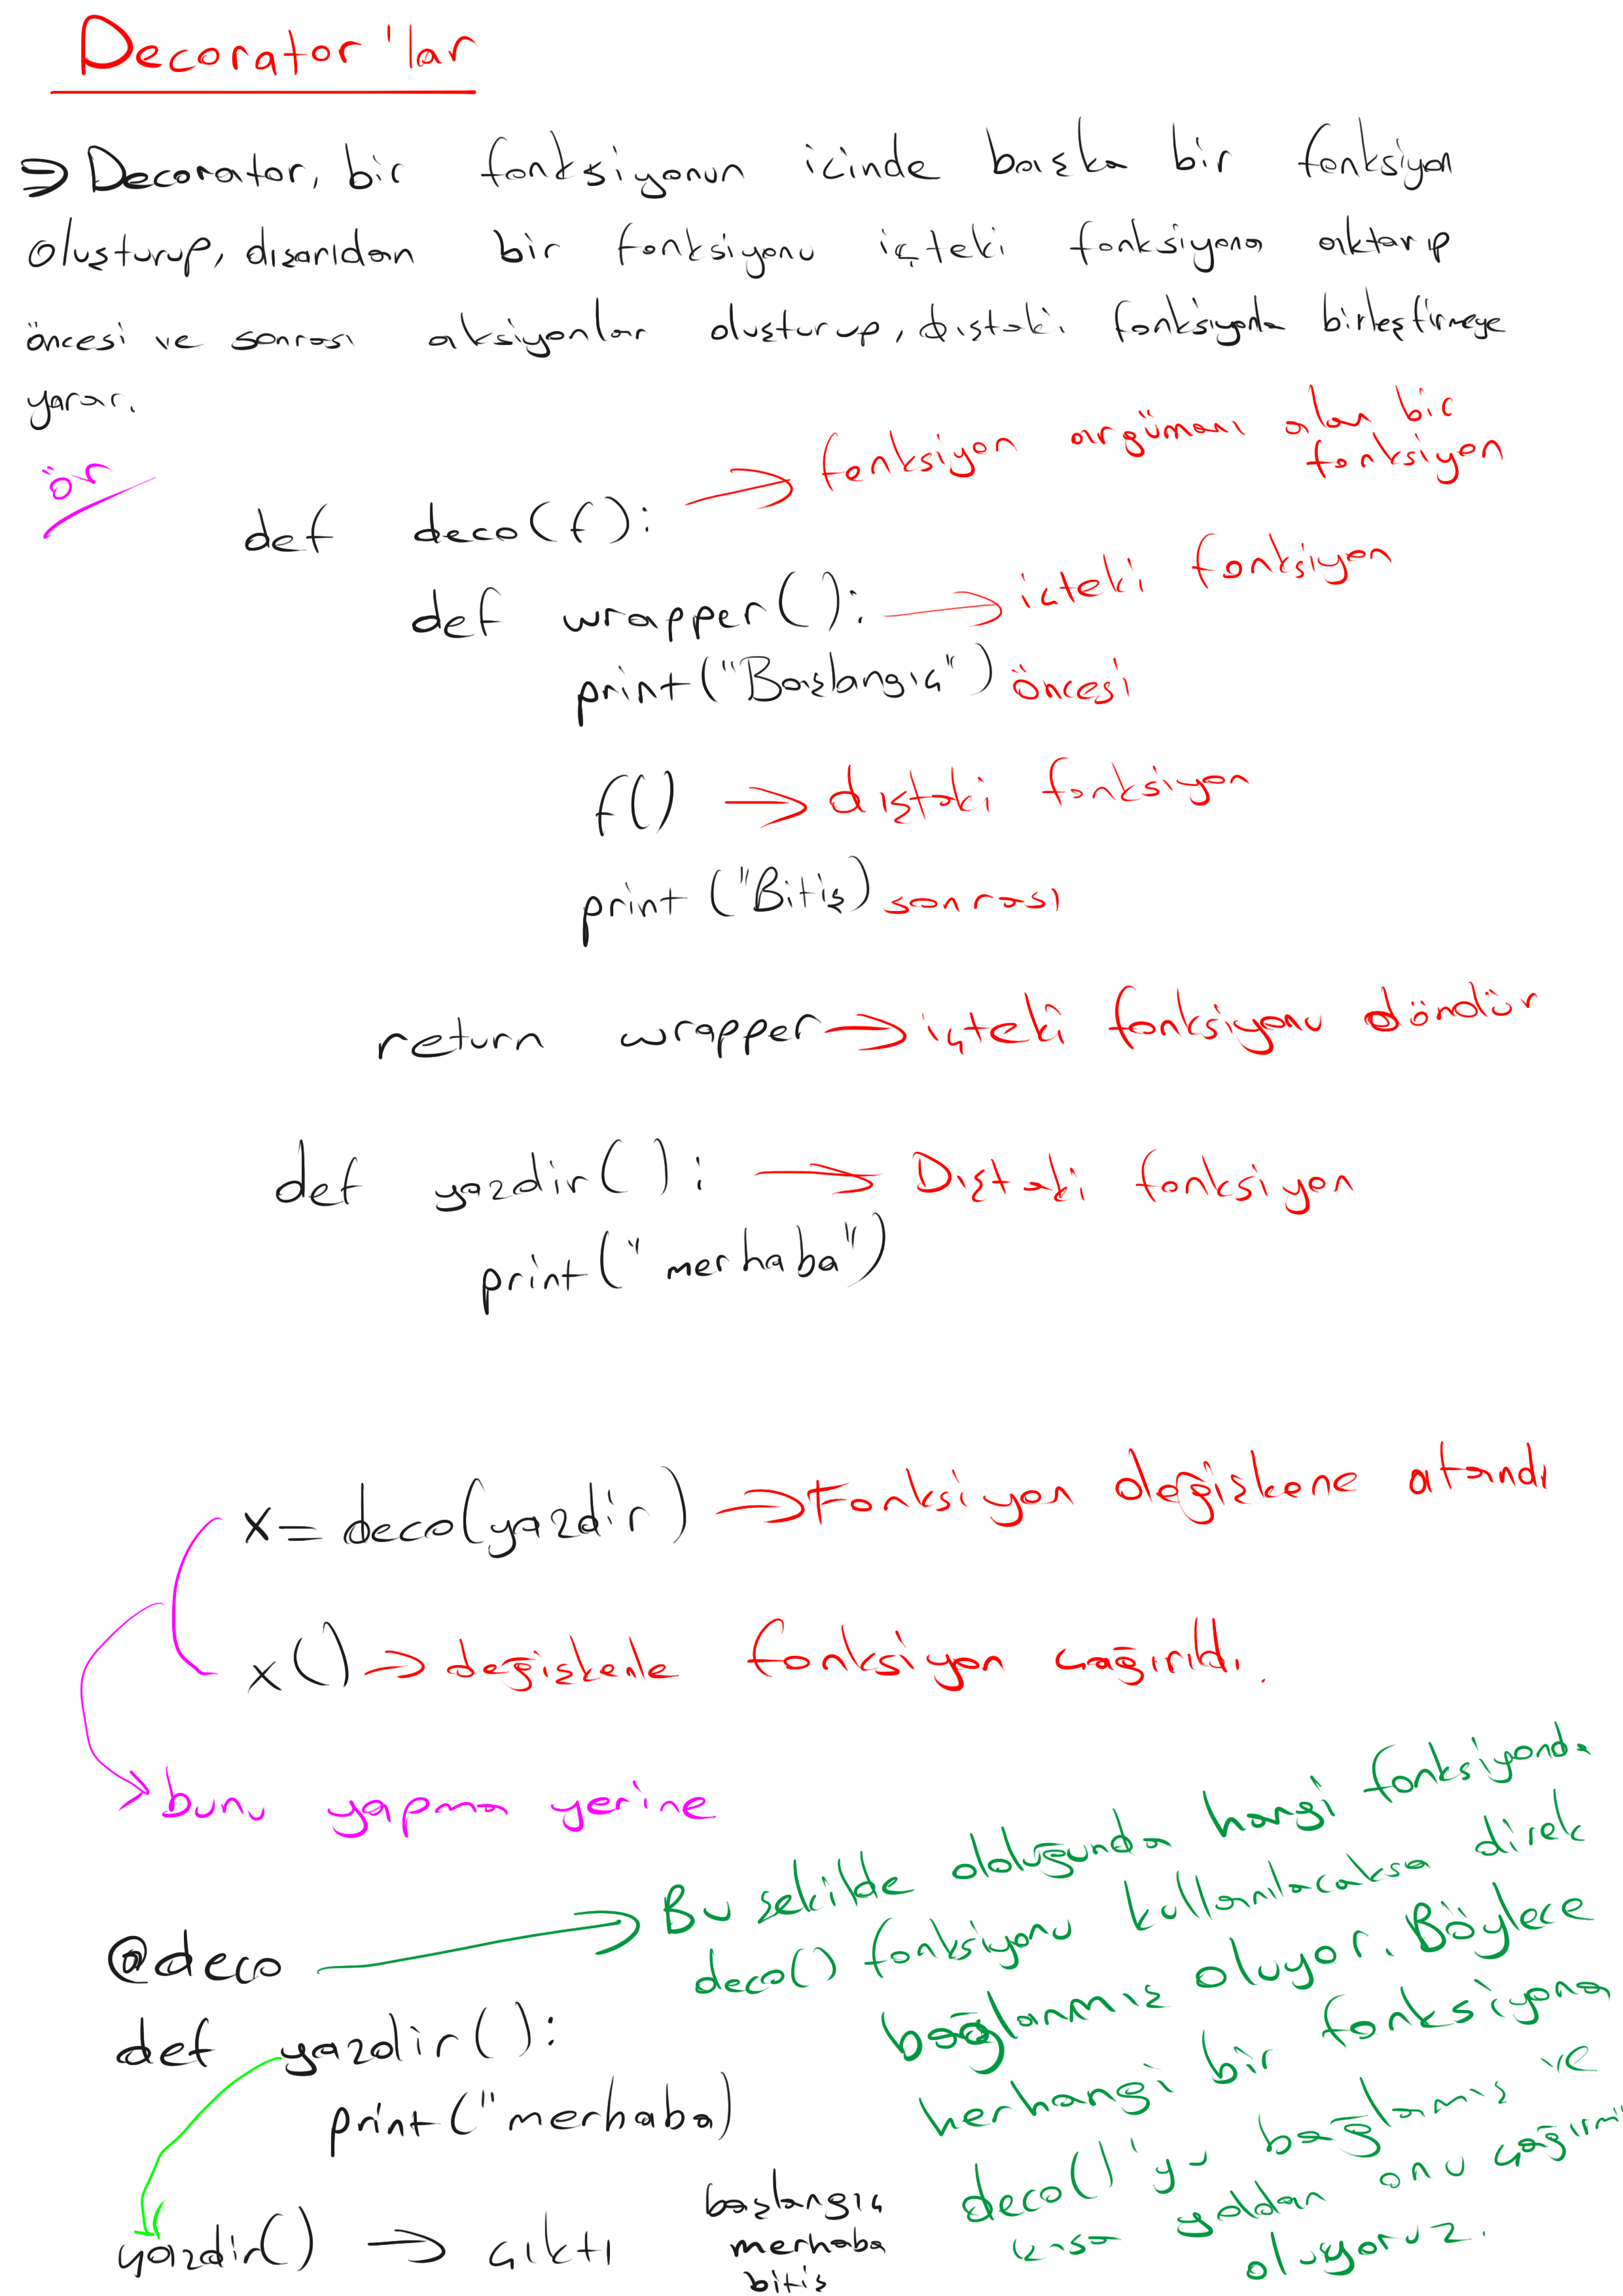 Decorator'lar
⇒ Decorator, bir fonksiyonun icinde başka bir fonksiyon
oluşturup, dışarıdan bir fonksiyonu içteki fonksiyona aktarıp
öncesi ve sonrası aksiyonlar oluşturup, dıştaki fonksiyonla birleştirmeye
yarar.
ör
def deco(f): → fonksiyon argümanı alan bir
fonksiyon
def wrapper(): → içteki fonksiyon
print("Başlangıç") öncesi
f() → dıştaki fonksiyon
print ("Bitiş) sonrası
return wrapper → içteki fonksiyonu döndür
def yazdir(): → Dıştaki fonksiyon
print("merhaba")
x = deco(yazdir) → Fonksiyon değişkene atandı
x() → değişkenle fonksiyon çağırıldı.
bunu yapma yerine
@deco → Bu şekilde olduğunda hangi fonksiyonda
deco() fonksiyonu kullanılacaksa direk
bağlanmış oluyor. Böylece
herhangi bir fonksiyona
deco()'yu bağlamış ve
kısa yoldan onu çağırmış
oluyoruz.
def yazdir():
print("merhaba)
yazdir() → çıktı
başlangıç
merhaba
bitiş